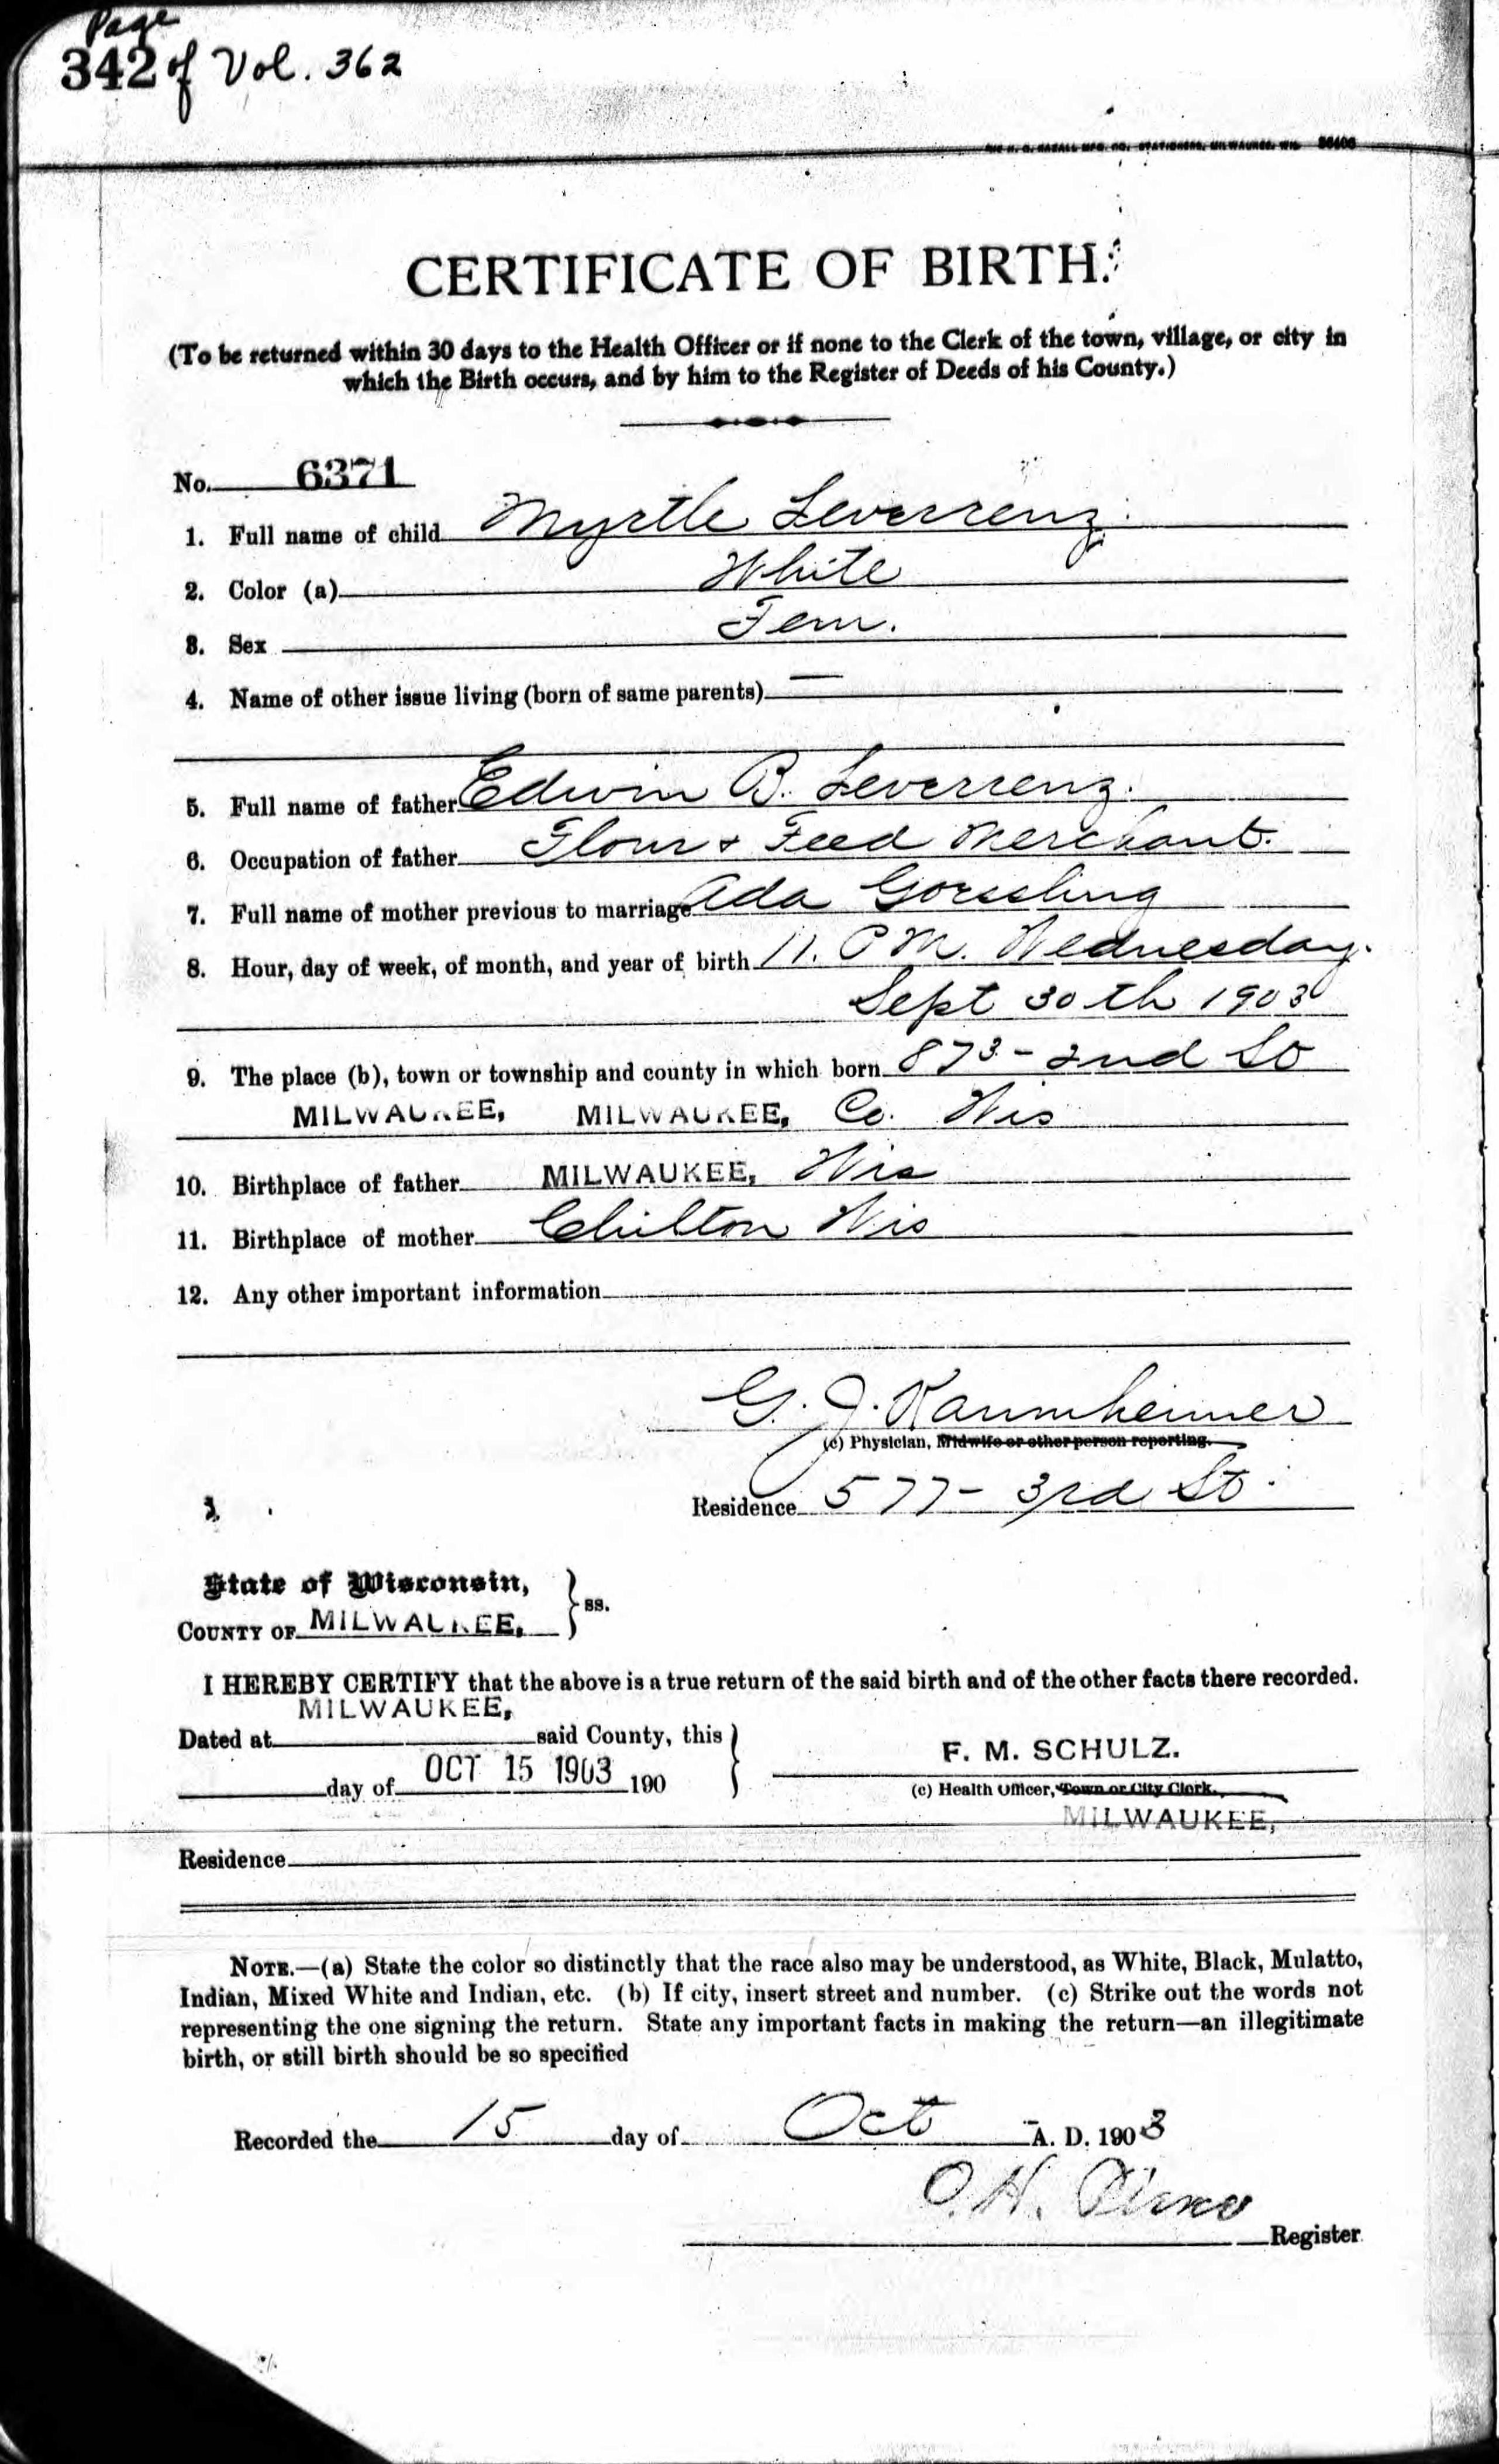 Page
342 of Vol. 362
CERTIFICATE OF BIRTH.
(To be returned within 30 days to the Health Officer or if none to the Clerk of the town, village, or city in
which the Birth occurs, and by him to the Register of Deeds of his County.)
No. 6371
1. Full name of child Myrtle Leverrenz.
2. Color (a) White
3. Sex Fem.
4. Name of other issue living (born of same parents) —
5. Full name of father Edwin B. Leverrenz.
6. Occupation of father Flour & Feed Merchant.
7. Full name of mother previous to marriage Ada Goessling
8. Hour, day of week, of month, and year of birth 11. P M. Wednesday.
Sept 30th 1903
9. The place (b), town or township and county in which born 873 - 2nd St
MILWAUKEE, MILWAUKEE, Co. Wis
10. Birthplace of father MILWAUKEE, Wis
11. Birthplace of mother Chilton Wis
12. Any other important information
G. J. Kaumheimer
(c) Physician, Midwife or other person reporting.
Residence 577 - 3rd St.
State of Wisconsin,
COUNTY OF MILWAUKEE, } ss.
I HEREBY CERTIFY that the above is a true return of the said birth and of the other facts there recorded.
MILWAUKEE,
Dated at said County, this
F. M. SCHULZ.
day of OCT 15 1903 190
(c) Health Officer, Town or City Clerk.
MILWAUKEE,
Residence
NOTE.—(a) State the color so distinctly that the race also may be understood, as White, Black, Mulatto,
Indian, Mixed White and Indian, etc. (b) If city, insert street and number. (c) Strike out the words not
representing the one signing the return. State any important facts in making the return—an illegitimate
birth, or still birth should be so specified
Recorded the 15 day of Oct A. D. 1903
O. H.
Register